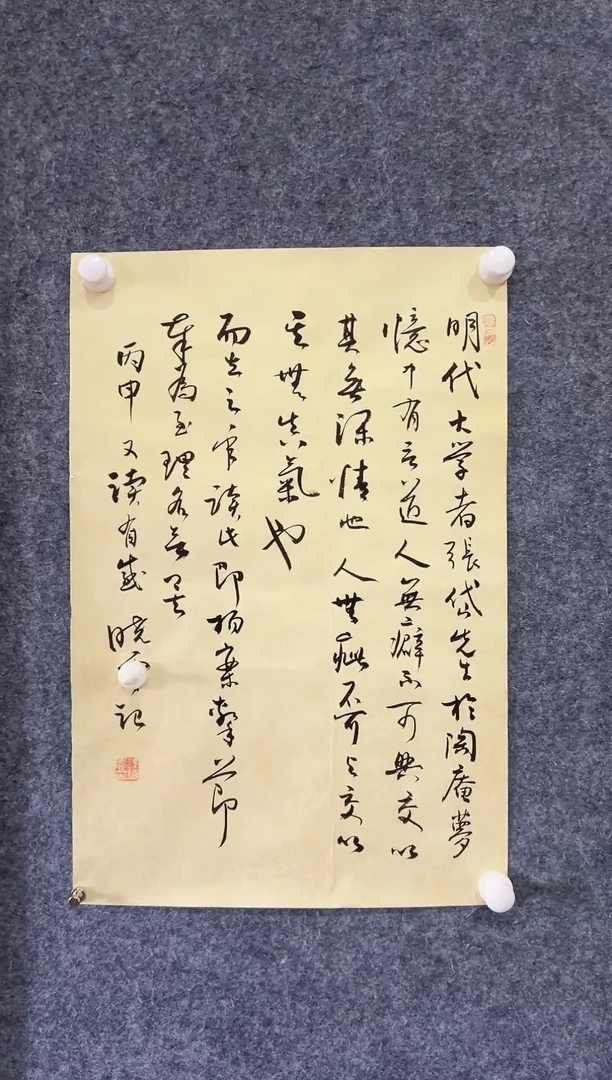 明代大学者張岱先生於陶庵夢
憶中有言道人無癖不可與交以
其無深情也人無疵不可与交以
其無真氣也
而立之年讀此即拍案擊節
奉為至理名言
丙申又讀有感 曉 记